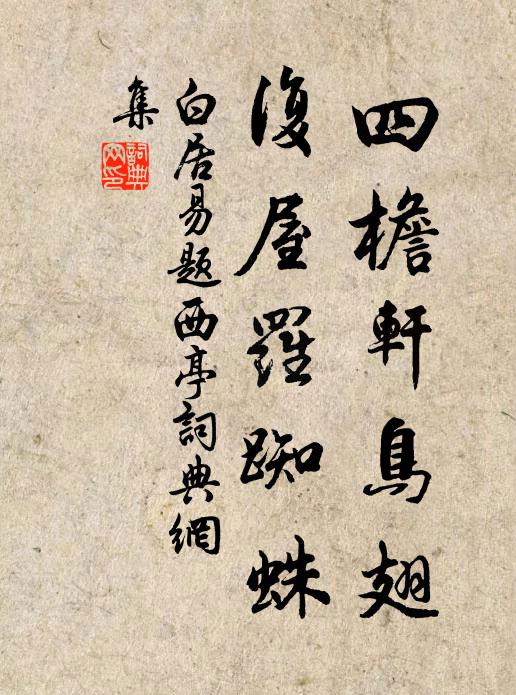 四檐軒鳥翅
復屋羅蜘蛛
白居易題西亭詞典網
集
詞典網印